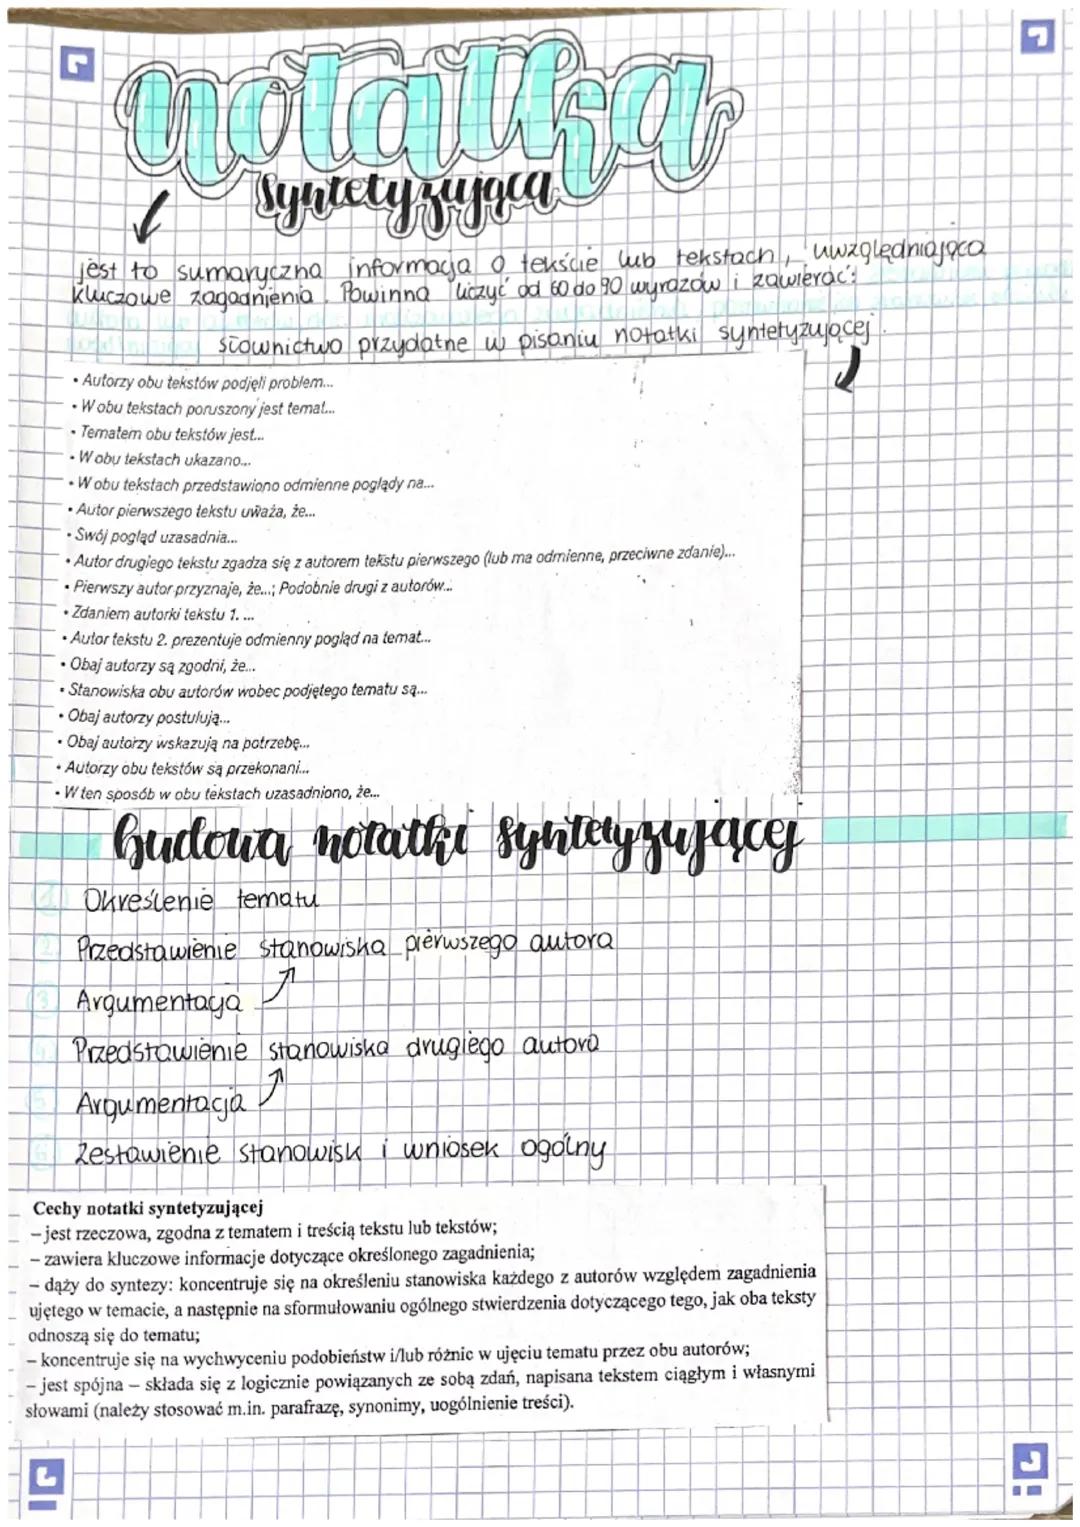 notatka
syntetyzująca
jest to sumaryczna informacja o tekście lub tekstach, uwzględniająca
kluczowe zagadnienia. Powinna liczyć od 60 do 90 wyrazów i zawierać:
słownictwo przydatne w pisaniu notatki syntetyzującej.
• Autorzy obu tekstów podjęli problem...
• W obu tekstach poruszony jest temat...
• Tematem obu tekstów jest...
• W obu tekstach ukazano...
• W obu tekstach przedstawiono odmienne poglądy na...
• Autor pierwszego tekstu uważa, że...
• Swój pogląd uzasadnia...
• Autor drugiego tekstu zgadza się z autorem tekstu pierwszego (lub ma odmienne, przeciwne zdanie)...
• Pierwszy autor przyznaje, że...; Podobnie drugi z autorów...
• Zdaniem autorki tekstu 1. ...
• Autor tekstu 2. prezentuje odmienny pogląd na temat...
• Obaj autorzy są zgodni, że...
• Stanowiska obu autorów wobec podjętego tematu są...
• Obaj autorzy postulują...
• Obaj autorzy wskazują na potrzebę...
• Autorzy obu tekstów są przekonani...
• W ten sposób w obu tekstach uzasadniono, że...
budowa notatki syntetyzującej
1. Określenie tematu
2. Przedstawienie stanowiska pierwszego autora
3. Argumentacja
4. Przedstawienie stanowiska drugiego autora
5. Argumentacja
6. Zestawienie stanowisk i wniosek ogólny
Cechy notatki syntetyzującej
– jest rzeczowa, zgodna z tematem i treścią tekstu lub tekstów;
– zawiera kluczowe informacje dotyczące określonego zagadnienia;
– dąży do syntezy: koncentruje się na określeniu stanowiska każdego z autorów względem zagadnienia
ujętego w temacie, a następnie na sformułowaniu ogólnego stwierdzenia dotyczącego tego, jak oba teksty
odnoszą się do tematu;
– koncentruje się na wychwyceniu podobieństw i/lub różnic w ujęciu tematu przez obu autorów;
– jest spójna – składa się z logicznie powiązanych ze sobą zdań, napisana tekstem ciągłym i własnymi
słowami (należy stosować m.in. parafrazę, synonimy, uogólnienie treści).